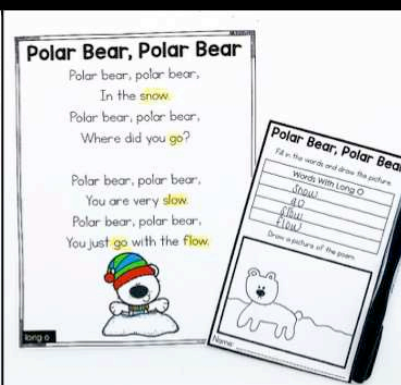 Polar Bear, Polar Bear
Polar bear, polar bear,
In the snow.
Polar bear, polar bear,
Where did you go?
Polar bear, polar bear,
You are very slow.
Polar bear, polar bear,
You just go with the flow.
long o
Polar Bear, Polar Bear
Fill in the words and draw the picture.
Words With Long O
Snow
go
slow
flow
Draw a picture of the poem.
Name: